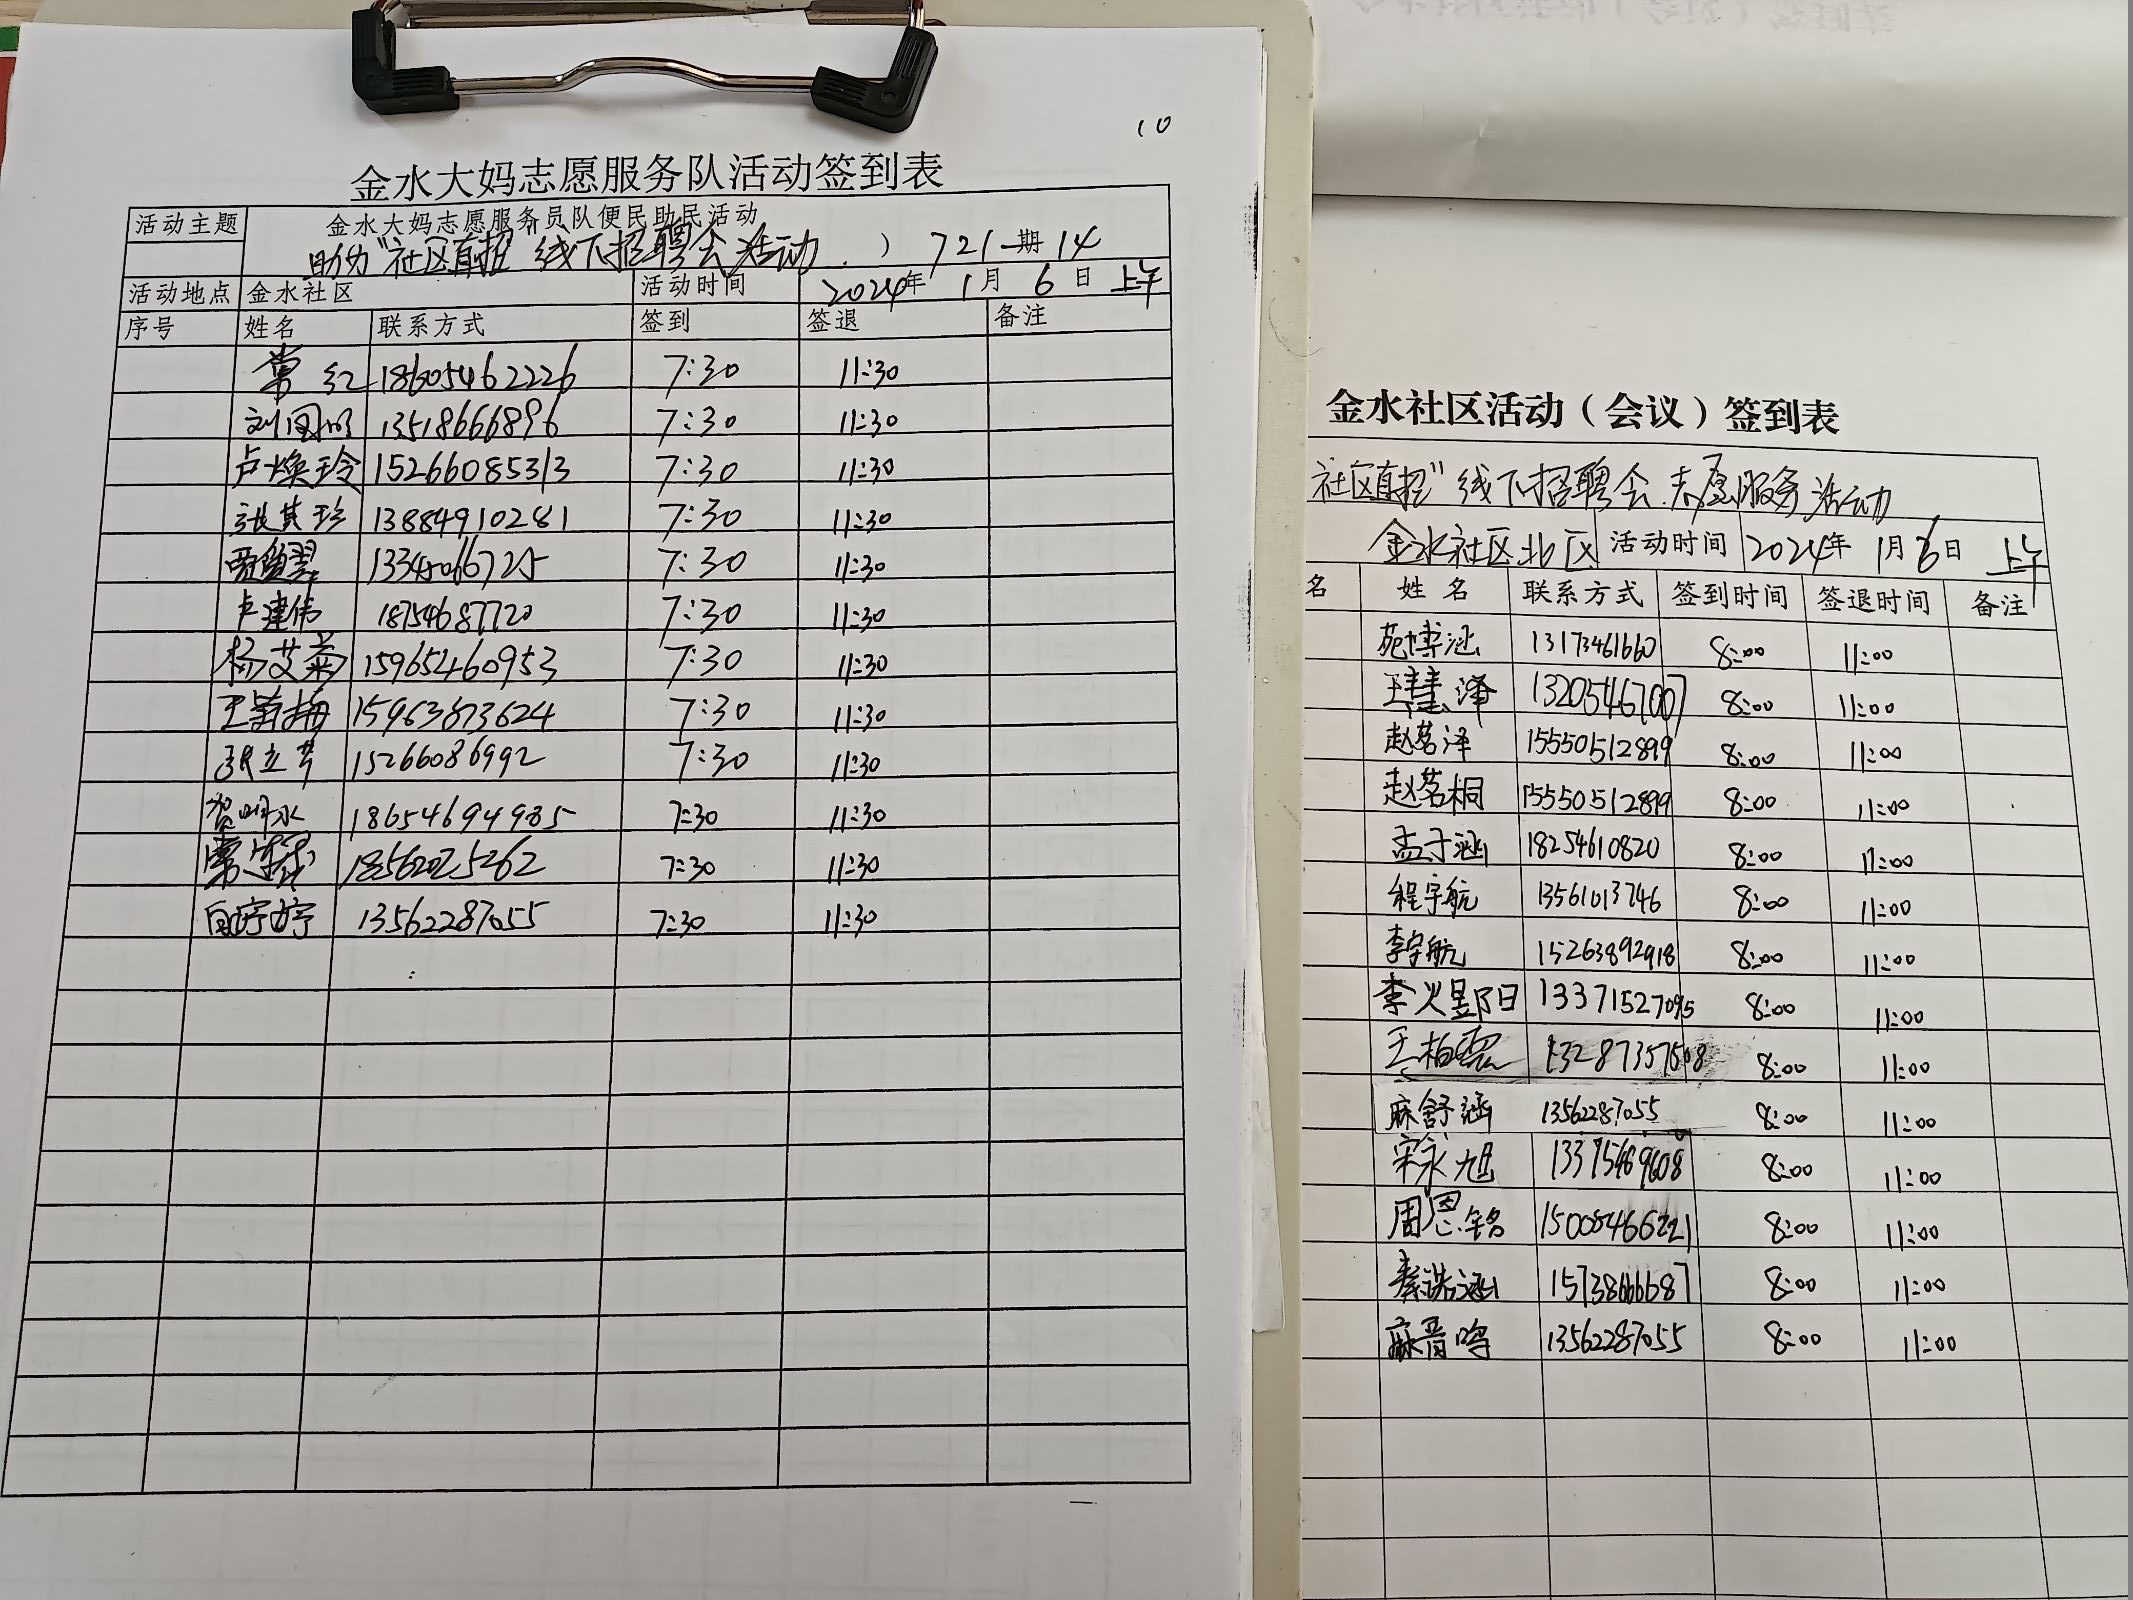 10
金水大妈志愿服务队活动签到表
活动主题 金水大妈志愿服务员队便民助民活动
助力"社区直招"线下招聘会活动.) 721期14
活动地点 金水社区 活动时间 2024年 1月 6日 上午
序号 姓名 联系方式 签到 签退 备注
常红 18605462226 7:30 11:30
刘国明 13518666896 7:30 11:30
卢焕玲 15266085313 7:30 11:30
张其珍 13884910281 7:30 11:30
13345066725 7:30 11:30
卢建伟 18754687720 7:30 11:30
杨艾菊 15965260953 7:30 11:30
王菊梅 15963873624 7:30 11:30
张立芹 15266086992 7:30 11:30
18654694985 7:30 11:30
18562025262 7:30 11:30
白婷婷 13562287055 7:30 11:30
金水社区活动（会议）签到表
社区直招"线下招聘会.志愿服务活动
金水社区北区 活动时间 2024年 1月6日 上午
名 姓名 联系方式 签到时间 签退时间 备注
苑博涵 13173461660 8:00 11:00
王慧泽 13205467007 8:00 11:00
赵茗泽 15550512899 8:00 11:00
赵茗桐 15550512899 8:00 11:00
孟子涵 18254610820 8:00 11:00
程宇航 13561013746 8:00 11:00
李宇航 15263892918 8:00 11:00
李火昱阳 13371527095 8:00 11:00
王柏霖 13287357508 8:00 11:00
麻舒涵 13562287055 8:00 11:00
宋永旭 13375469608 8:00 11:00
周恩铭 15005466221 8:00 11:00
秦浩涵 15738666687 8:00 11:00
麻晋鸣 13562287055 8:00 11:00